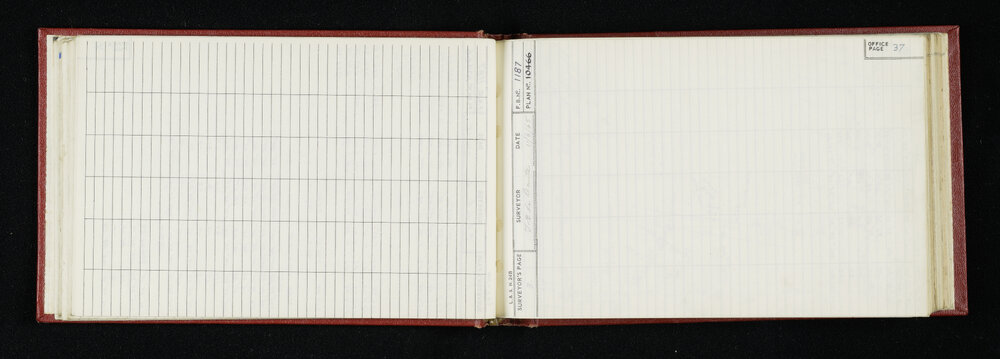 OFFICE
PAGE 37
F.B. Nº. 1187
PLAN Nº. 10466
DATE
SURVEYOR
L. & S. H. 26B
SURVEYOR'S PAGE